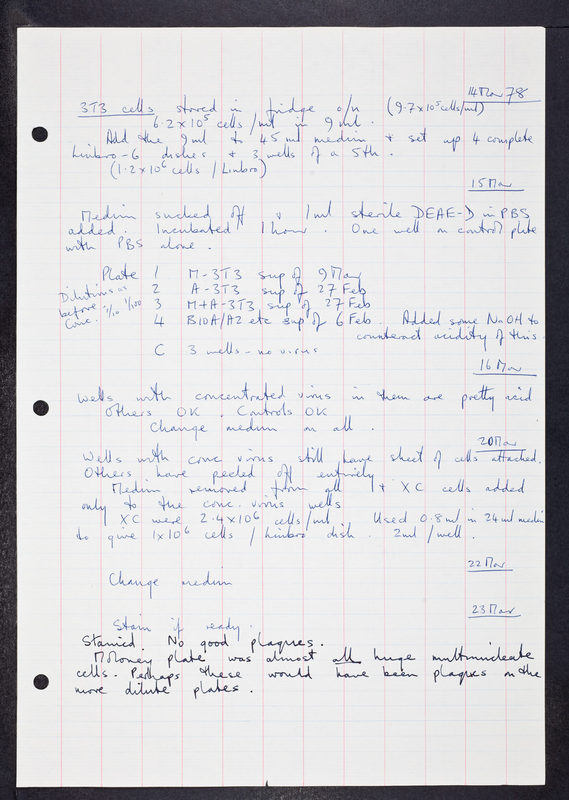 14 Mar 78
3T3 cells stored in fridge o/n (9.7x10⁵ cells/ml)
6.2 x 10⁵ cells/ml in 9 ml.
Add the 9ml to 45 ml medium & set up 4 complete
Linbro-6 dishes & 3 wells of a 5th.
(1.2 x 10⁶ cells / Linbro)
15 Mar
Medium sucked off & 1ml sterile DEAE-D in PBS
added. Incubated 1 hour. One well on control plate
with PBS alone.
Plate 1 M-3T3 sup of 9 Mar
Dilutions as 2 A-3T3 sup of 27 Feb
before 1/10 1/100 3 M+A-3T3 sup of 27 Feb
Conc. 4 B10A/A2 etc sup of 6 Feb. Added some NaOH to
counteract acidity of this.
C 3 wells - no virus
16 Mar
Wells with concentrated virus in them are pretty acid
Others OK. Controls OK
Change medium on all.
20 Mar
Wells with conc virus still have sheet of cells attached.
Others have peeled off entirely
Medium removed from all & XC cells added
only to the conc. virus wells
XC were 2.4x10⁶ cells/ml. Used 0.8ml in 24ml medium
to give 1x10⁶ cells / Linbro dish. 2ml/well.
22 Mar
Change medium
23 Mar
Stain if ready.
Stained. No good plaques.
Moloney plate was almost all huge multinucleate
cells. Perhaps these would have been plaques on the
more dilute plates.